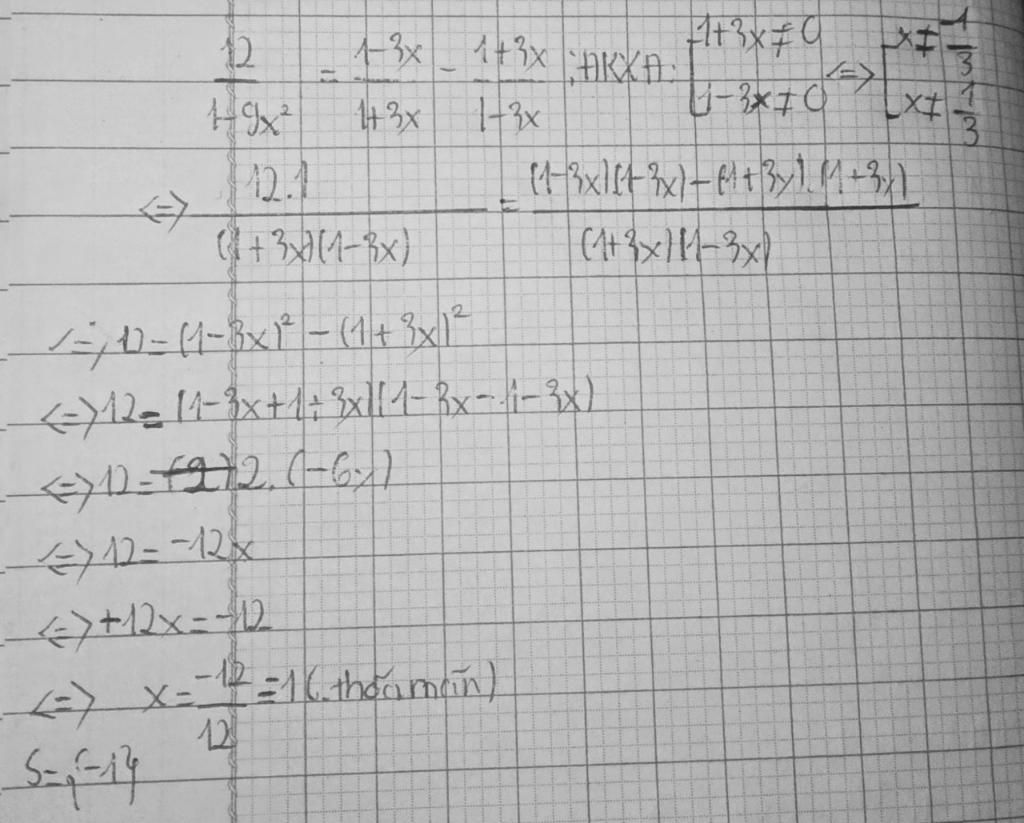 12/(1-9x²) = (1-3x)/(1+3x) - (1+3x)/(1-3x) ; ĐKXĐ: [1+3x≠0 [1-3x≠0 <=> [x≠-1/3 [x≠1/3
<=> 12.1/((1+3x)(1-3x)) = ((1-3x)(1-3x)-(1+3x).(1+3x))/((1+3x)(1-3x))
<=> 12=(1-3x)² - (1+3x)²
<=> 12= (1-3x+1+3x)(1-3x-1-3x)
<=> 12= 2.(-6x)
<=> 12=-12x
<=> +12x=-12
<=> x= -12/12 =1 (thỏa mãn)
S={-1}